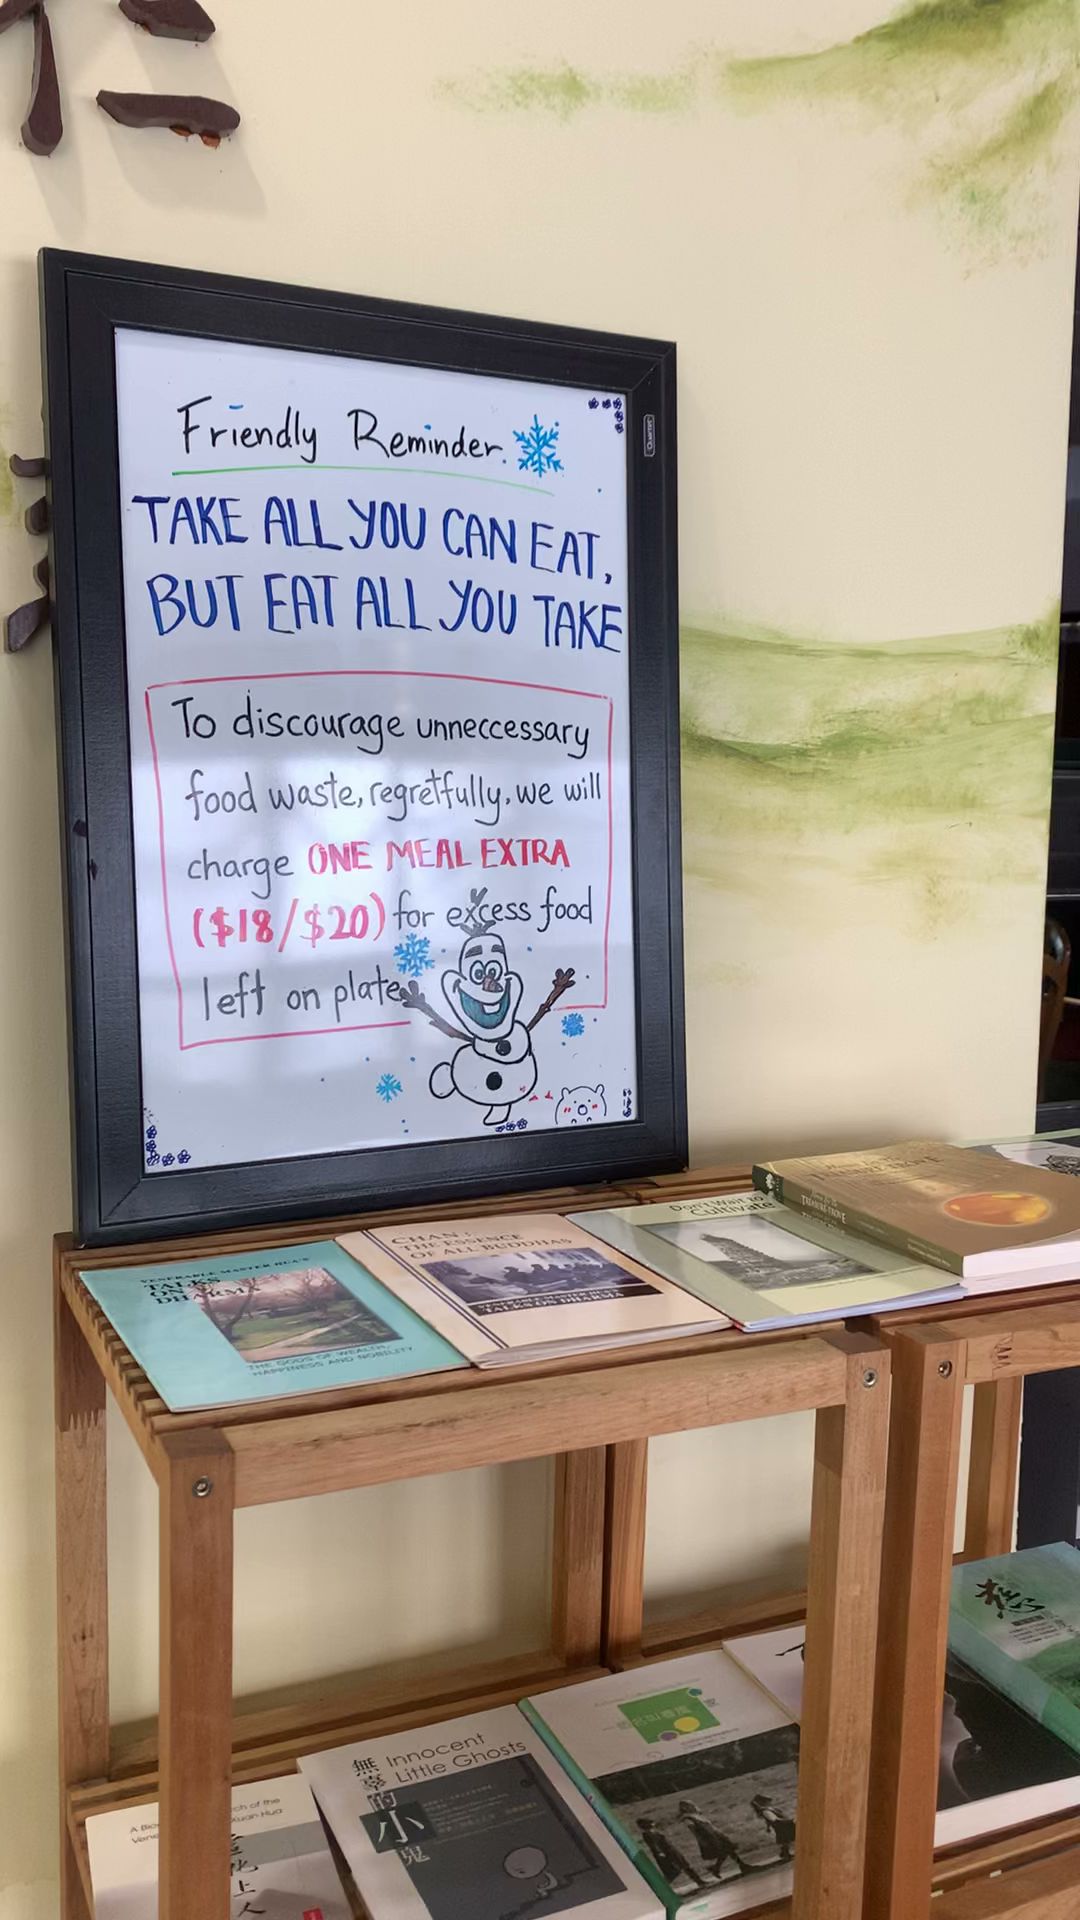 Friendly Reminder
TAKE ALL YOU CAN EAT,
BUT EAT ALL YOU TAKE
To discourage unneccessary
food waste, regretfully, we will
charge ONE MEAL EXTRA
($18/$20) for excess food
left on plate
Quartet
VENERABLE MASTER HUA'S
TALKS
ON
DHARMA
THE GODS OF WEALTH,
HAPPINESS AND NOBILITY
CHAN:
THE ESSENCE
OF ALL BUDDHAS
VENERABLE MASTER HUA'S
TALKS ON DHARMA
Don't Wait to
Cultivate
TREASURE TROVE
Innocent
Little Ghosts
無辜的小鬼
上人